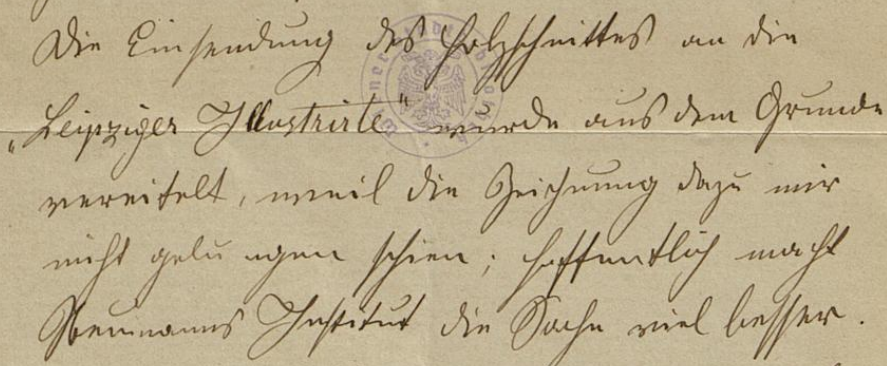 Die Einsendung des Holzschnittes an die
„Leipziger Illustrirte“ wurde aus dem Grunde
vereitelt, weil die Zeichnung dazu mir
nicht gelungen schien; hoffentlich macht
Neumanns Institut die Sache viel besser.